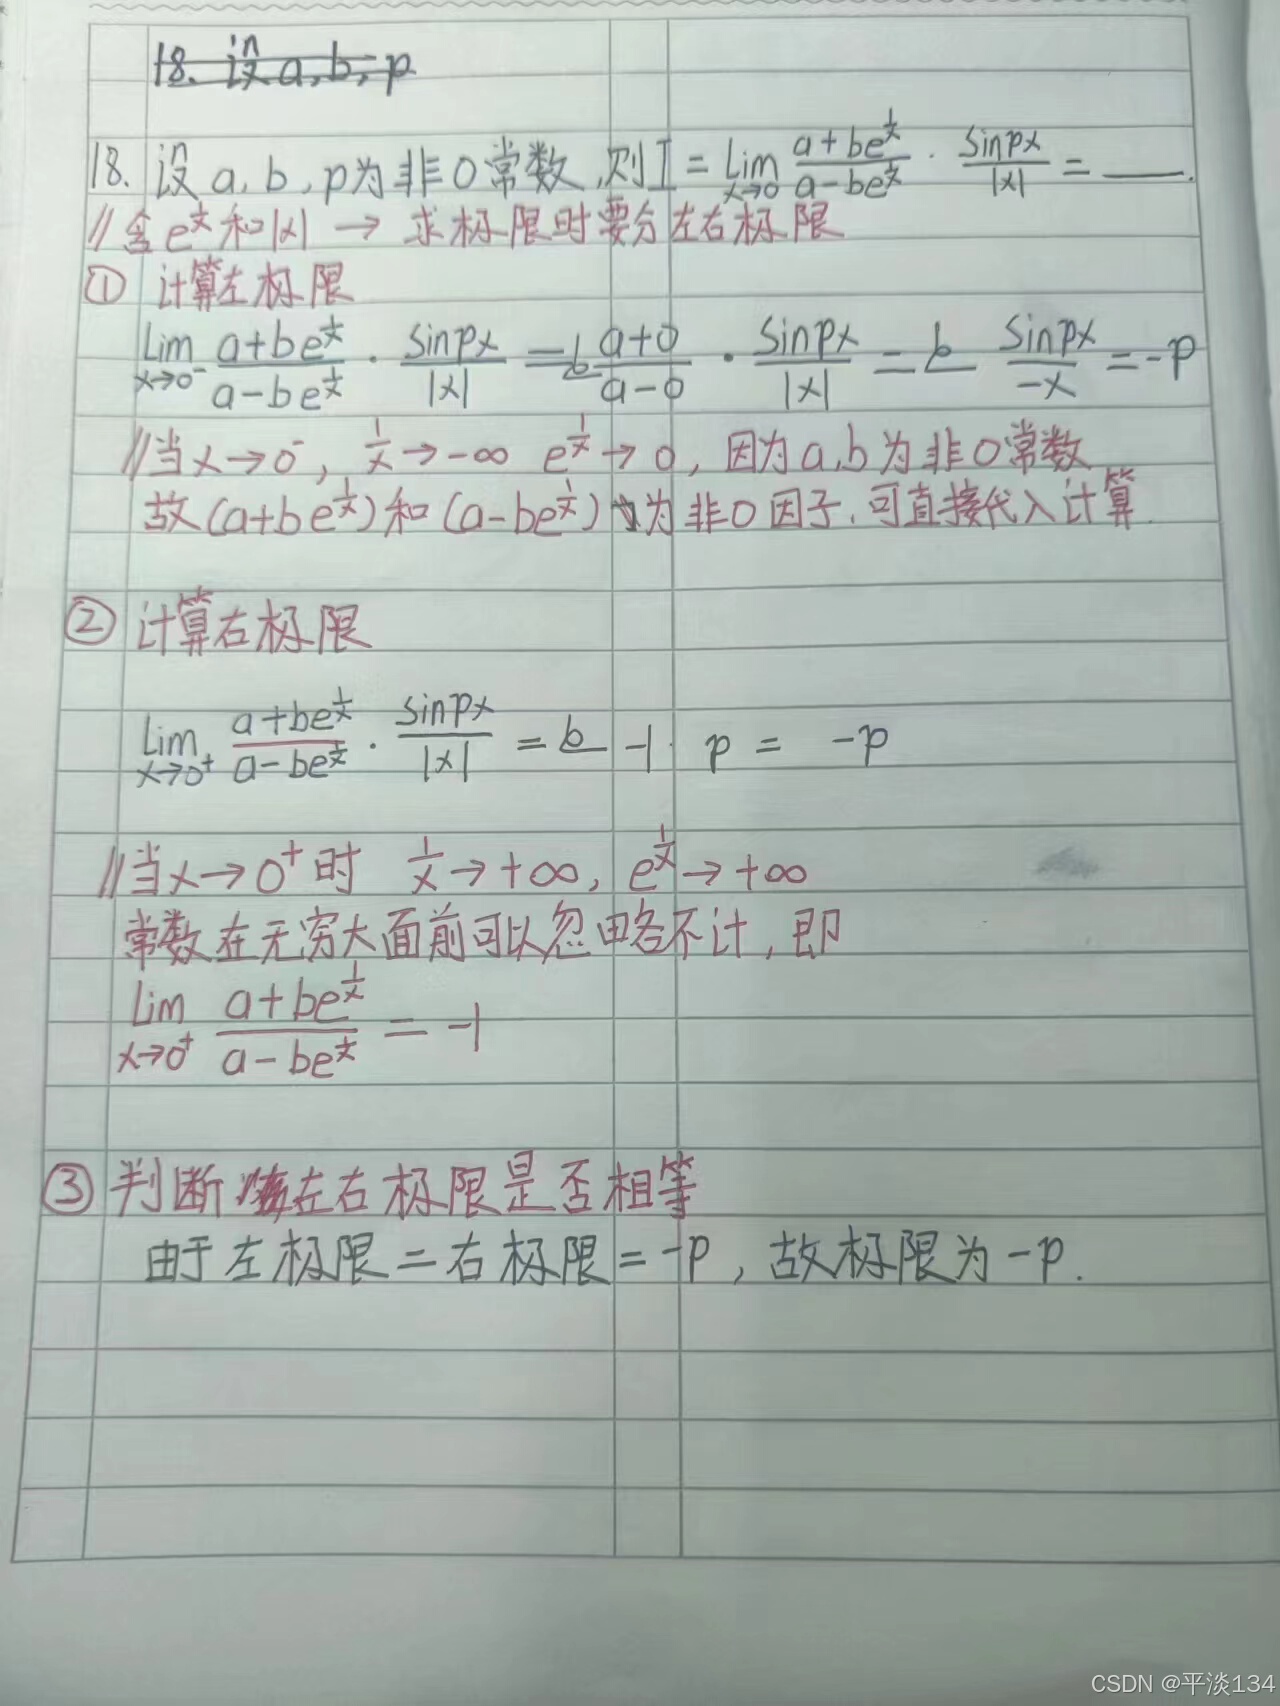 18. 设a,b,p
18. 设a,b,p为非0常数,则I=lim_{x→0} (a+be^{1/x})/(a-be^{1/x}) · sinpx/|x| = ____.
//含e^{1/x}和|x| → 求极限时要分左右极限
① 计算左极限
lim_{x→0⁻} (a+be^{1/x})/(a-be^{1/x}) · sinpx/|x| = (a+0)/(a-0) · sinpx/|x| = sinpx/-x = -p
//当x→0⁻, 1/x→-∞ e^{1/x}→0, 因为a,b为非0常数
故(a+be^{1/x})和(a-be^{1/x})为非0因子,可直接代入计算.
② 计算右极限
lim_{x→0⁺} (a+be^{1/x})/(a-be^{1/x}) · sinpx/|x| = -1· p = -p
//当x→0⁺时 1/x→+∞, e^{1/x}→+∞
常数在无穷大面前可以忽略不计,即
lim_{x→0⁺} (a+be^{1/x})/(a-be^{1/x}) = -1
③ 判断左右极限是否相等
由于左极限=右极限=-p,故极限为-p.
CSDN @平淡134